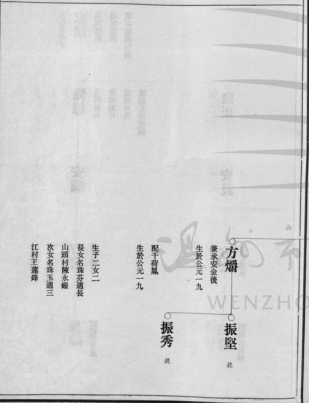 方熠
兼承安金後
生於公元一九
配干荷鳳
生於公元一九
生子二女二
長女名珠芬適長
山頭村陳永銀
次女名珠玉適三
江村王蓮鋒
振堅
振秀
溫州市
WENZHO